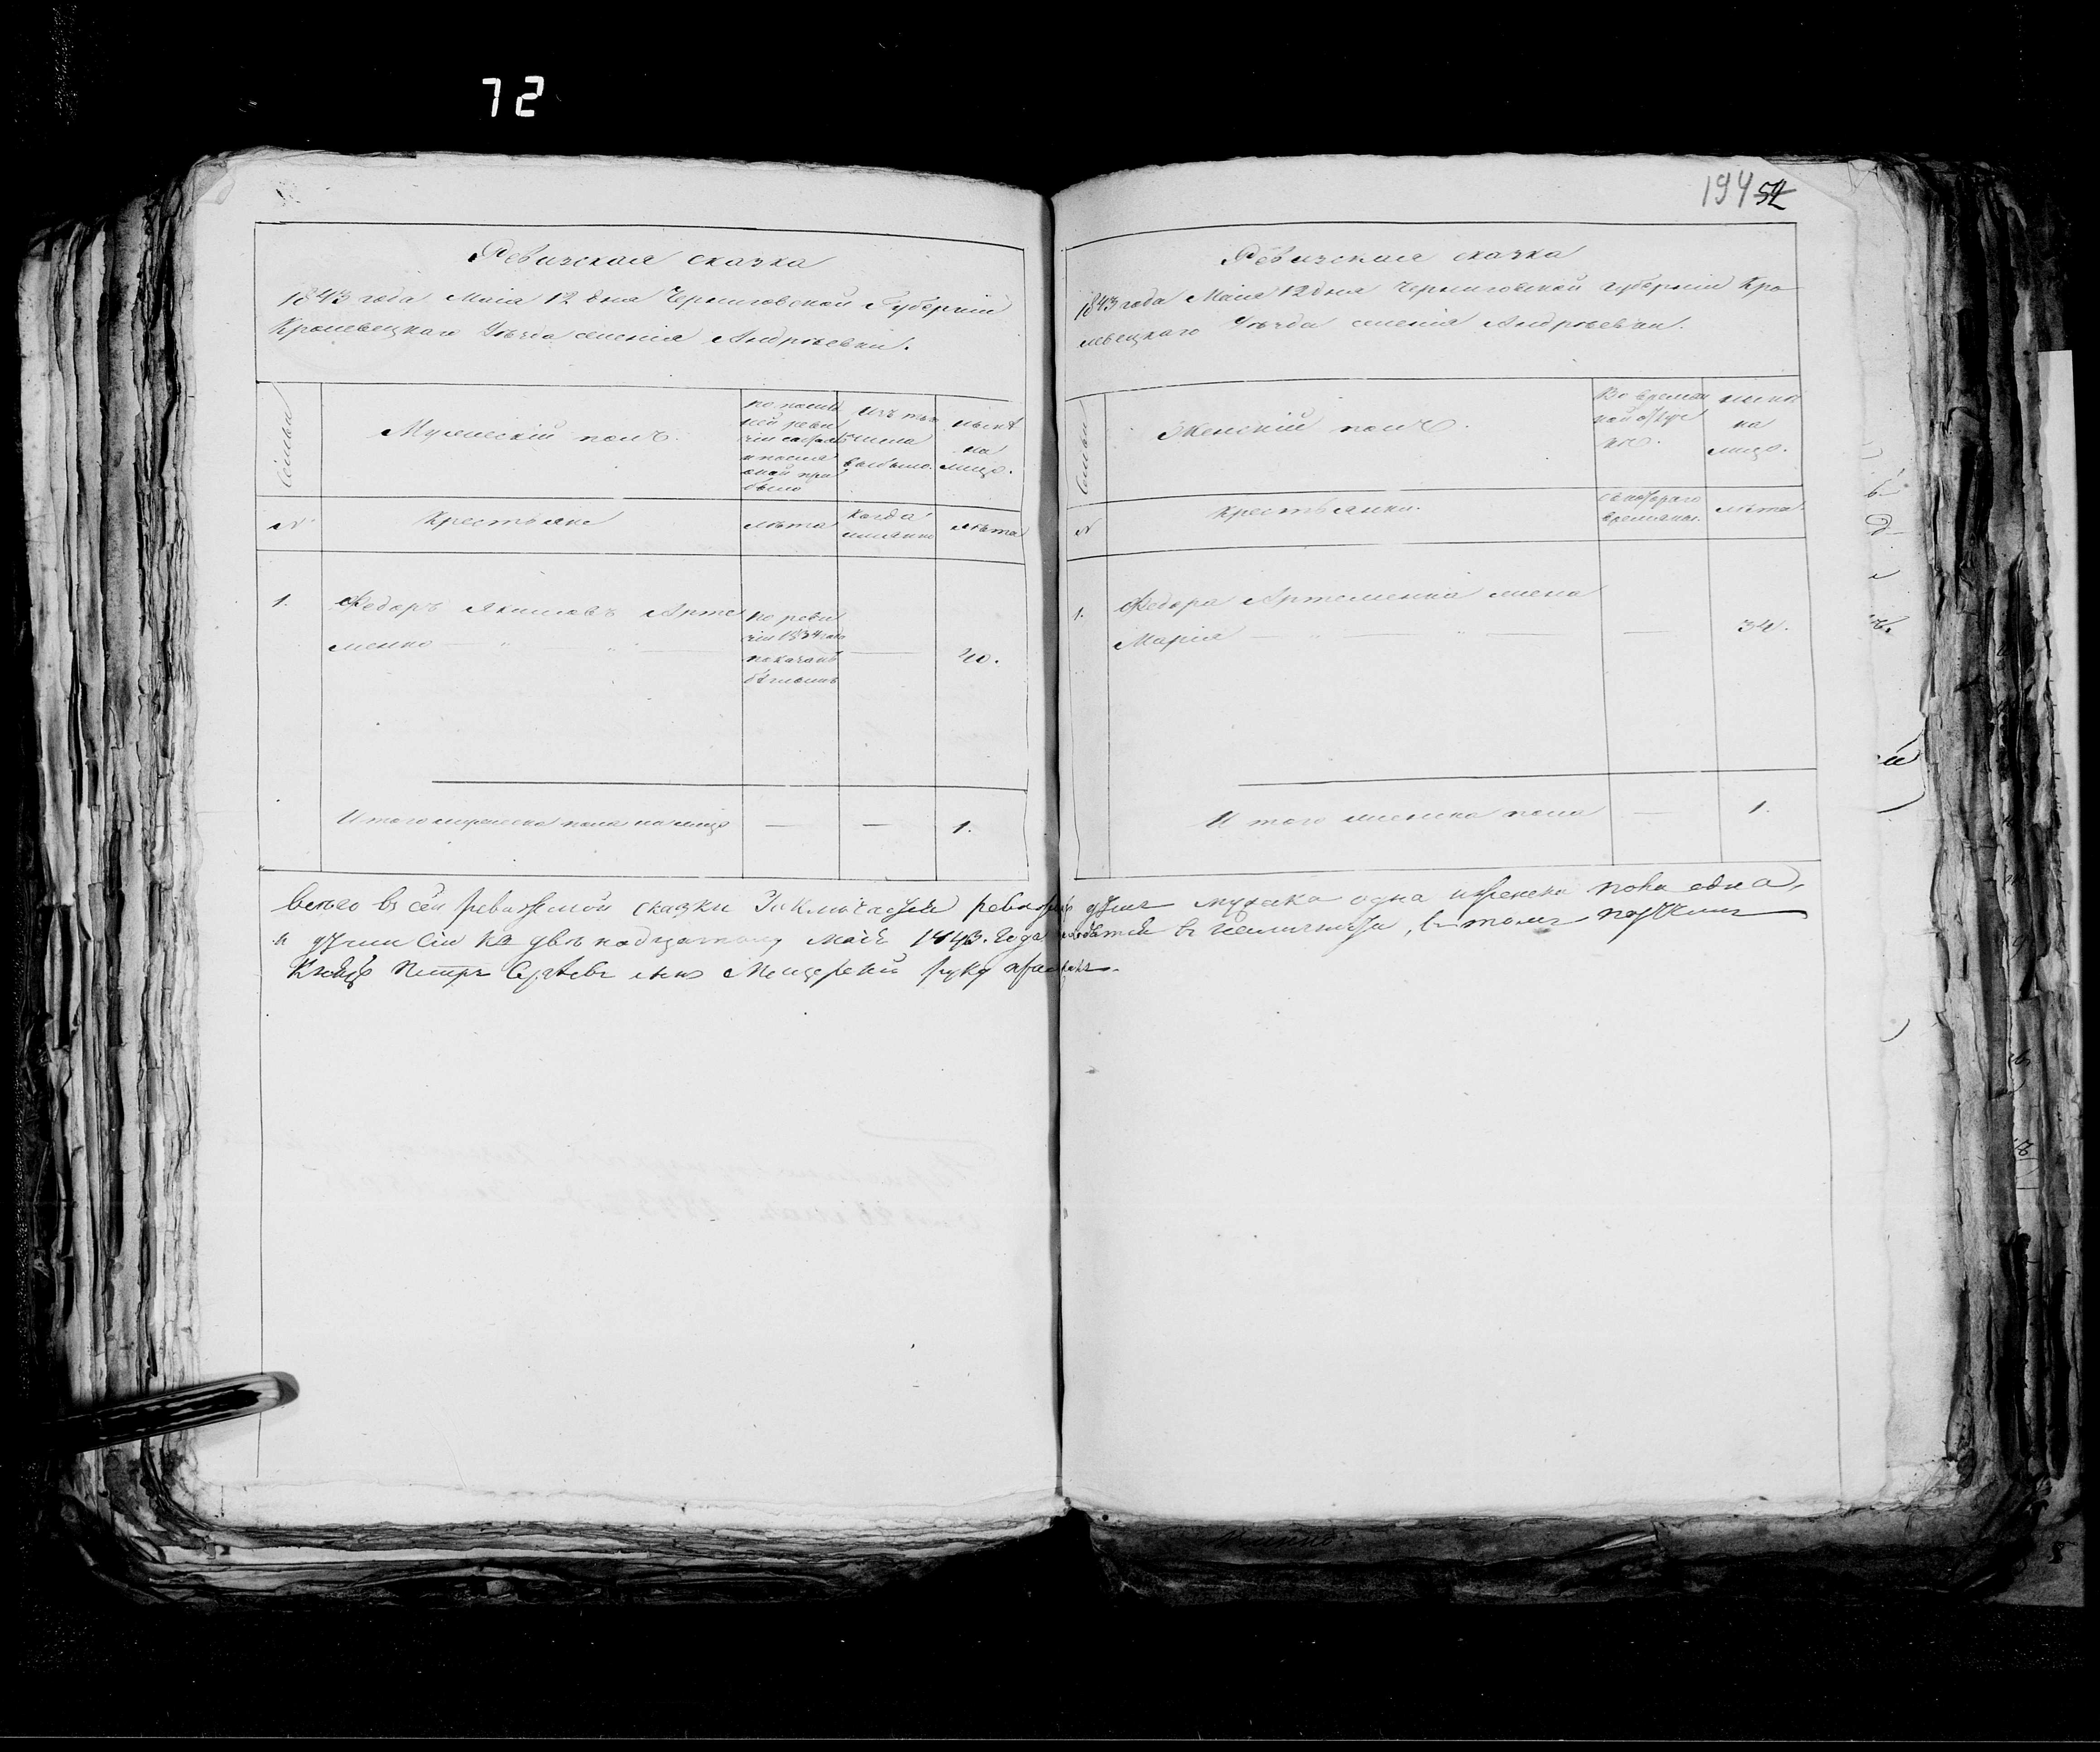 72
194 52
Ревизская сказка
1843 года Маія 12 дня Черниговской Губерніи
Кролевецкаго Уѣзда селенія Андреевки.
Семьи
Мужескій полъ.
по послѣд
ней реви
зіи состоя
и послѣ
оной при
было
изъ того
числа
выбыло.
нынѣ
на
лицо.
№
Крестьяне
лѣта
когда
имянно
лѣта
1.
Федоръ Якимовъ Арте
менко — " — " —
по реви
зіи 1834 года
показанъ
бѣглымъ
—
40.
Итого мужеска пола на лицо
—
—
1.
Ревизская сказка
1843 года Маія 12 дня Черниговской губерніи Кро
левецкаго Уѣзда селенія Андреевки.
Семьи
Женскій полъ.
Во времен
ной отлуч
кѣ.
нынѣ
на
лицо.
№
Крестьянки.
съ котораго
времяни.
лѣта
1.
Федора Артеменка жена
Марія — " — " —
—
34.
Итого женска пола
—
1.
всего въ сей ревизской сказки Заключается ревизскихъ душъ мужска одна и женска пола одна,
и души сіи къ двѣнадцатому Маія 1843. Года въ наличности, въ томъ
Князь Петръ Сергѣевъ сынъ Мещерскій руку приложилъ.